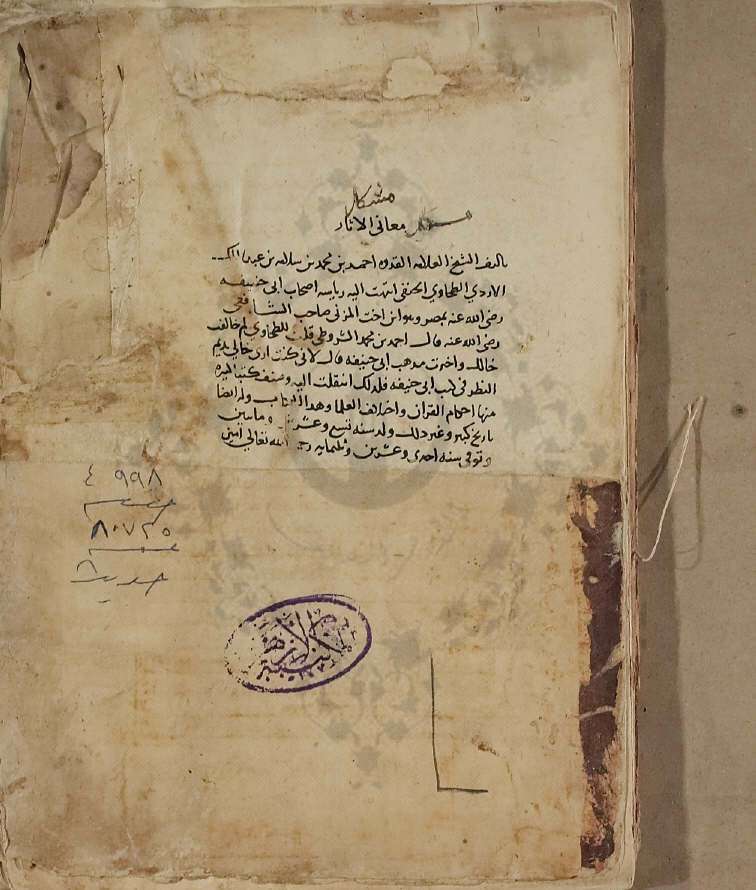 مشكل
معاني الاثار
تاليف الشيخ العلامه القدوه احمد بن محمد بن سلامه بن عبد الملك
الازدي الطحاوي الحنفي انتهت اليه رياسه اصحاب ابي حنيفه
رضي الله عنه بمصر وهو ابن اخت المزني صاحب الشافعي
رضي الله عنه قال احمد بن محمد الشروطي قلت للطحاوي لم خالفت
خالك واخترت مدهب ابي حنيفه قال لاني كنت اري خالي يديم
النظر في كتب ابي حنيفه فلدلك انتقلت اليه وصنف كتبا كثيره
منها احكام القران واختلاف العلما وهدا الكتاب وله ايضا
تاريخ كبير وغير دلك ولد سنه تسع وعشرين وماىتين
وتوفي سنه احدي وعشرين وثلثمايه رحمه الله تعالي امين
٤ ٩٩٨
٨٠٧٢٥
حديث